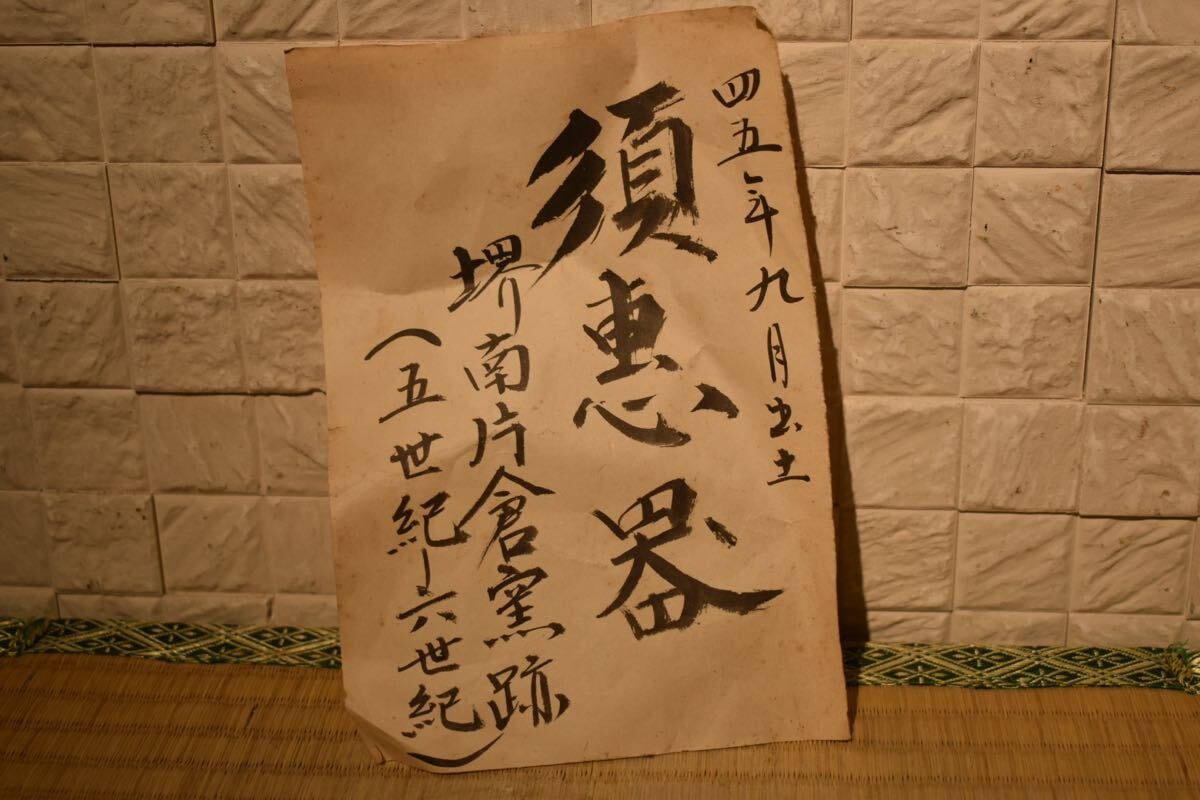 四五年九月出土
須恵器
堺南片倉窯跡
(五世紀〜六世紀)